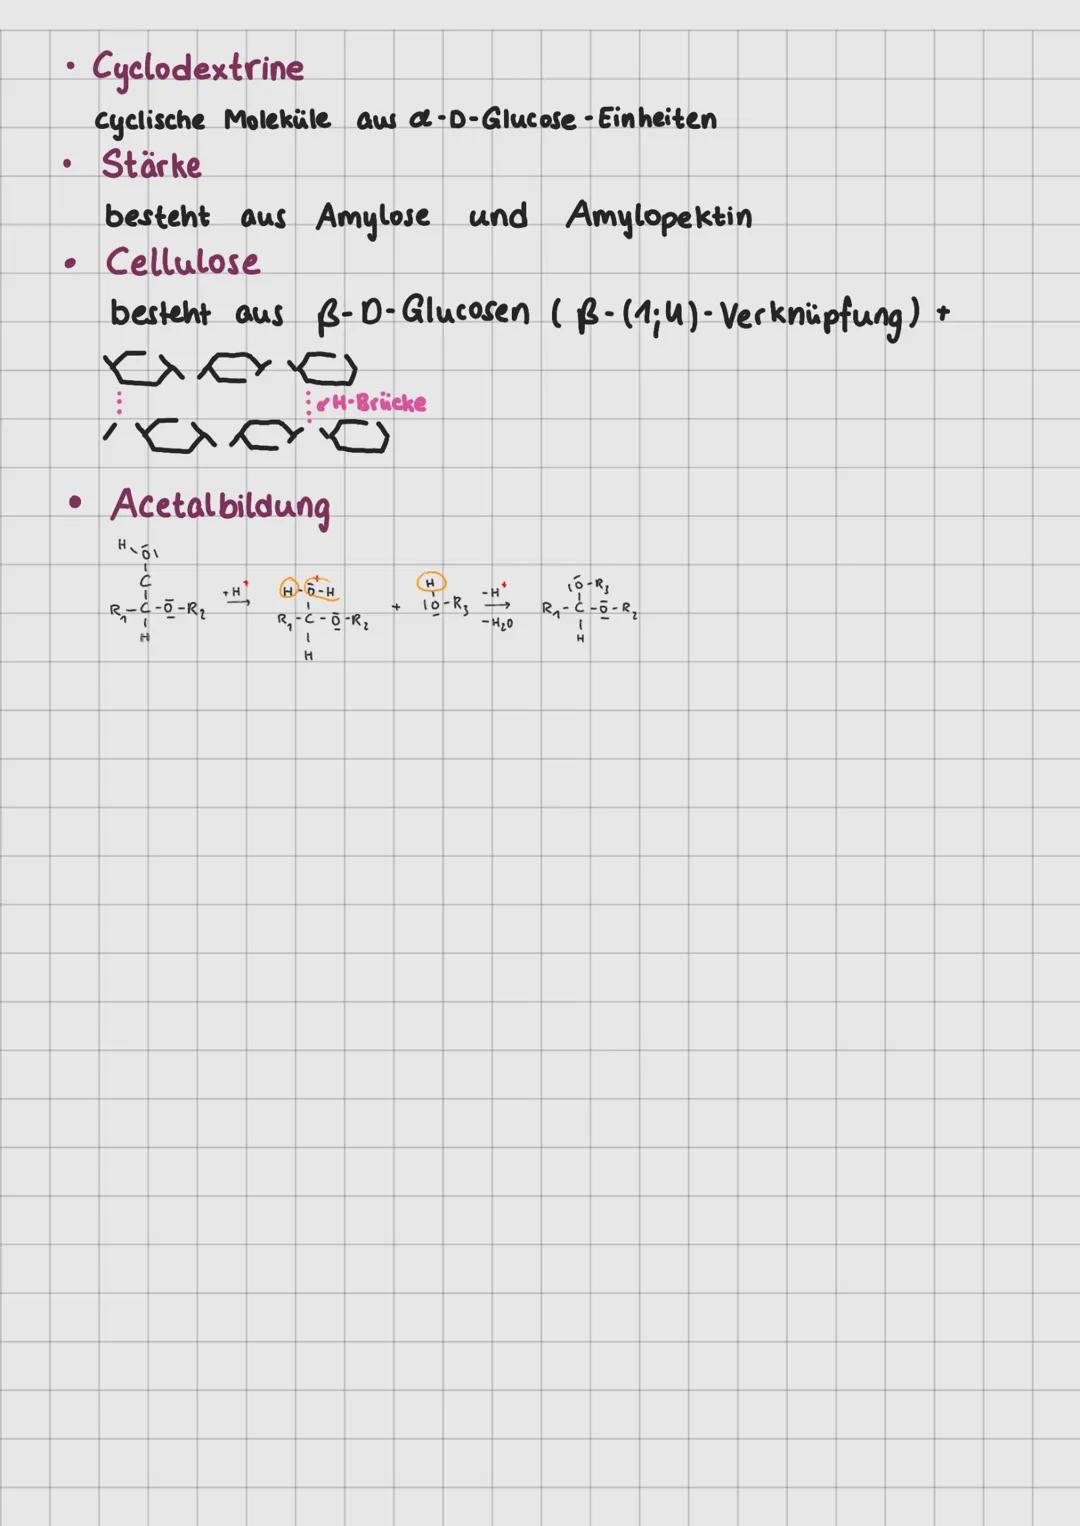 • Cyclodextrine
cyclische Moleküle aus α-D-Glucose-Einheiten
• Stärke
besteht aus Amylose und Amylopektin
• Cellulose
besteht aus β-D-Glucosen (β-(1;4)-Verknüpfung) +
H-Brücke
• Acetalbildung
H
O
C
R₁-C-O-R₂
H
+H⁺
H-O⁺-H
R₁-C-O-R₂
H
+
H
O-R₃
-H⁺
-H₂O
O-R₃
R₁-C-O-R₂
H